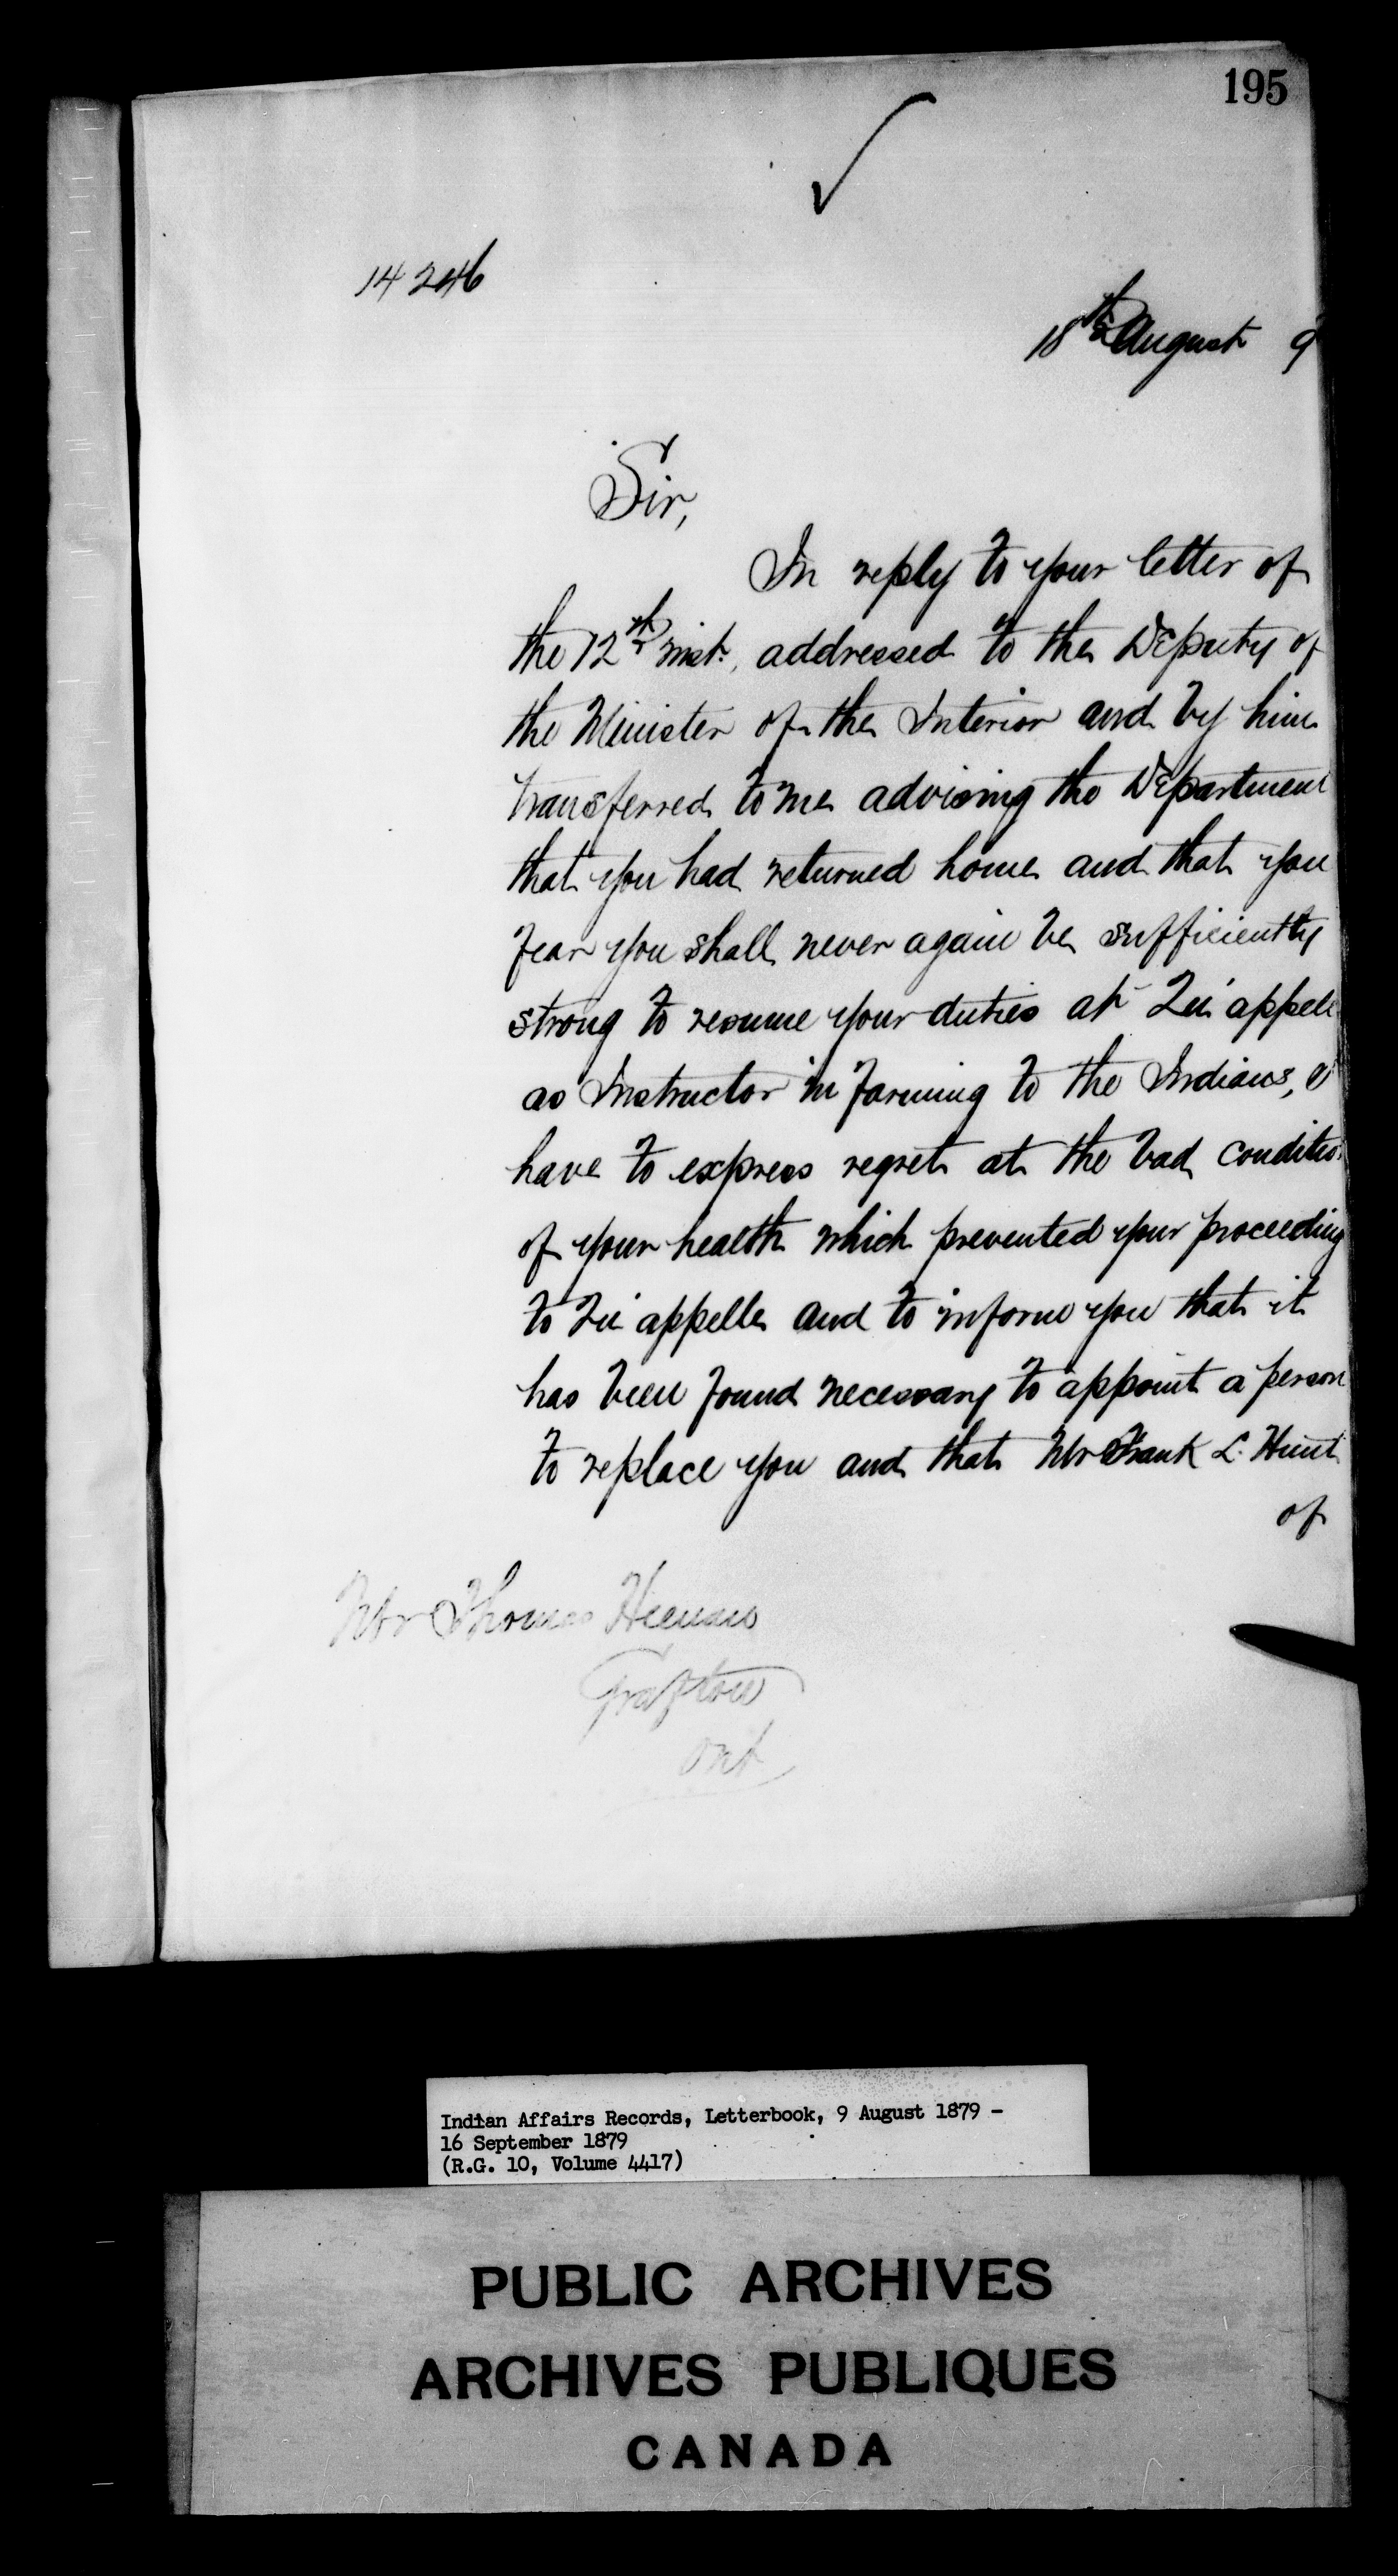 195
14246
18th August 9
Sir,
In reply to your letter of
the 12th inst., addressed to the Deputy of
the Minister of the Interior and by him
transferred to me advising the Department
that you had returned home and that you
fear you shall never again be sufficiently
strong to resume your duties at Qu'appelle
as Instructor in farming to the Indians, I
have to express regret at the bad condition
of your health which prevented your proceeding
to Qu'appelle and to inform you that it
has been found necessary to appoint a person
to replace you and that Mr Frank L. Hunt
of
Mr Thomas
Grafton
Ont
Indian Affairs Records, Letterbook, 9 August 1879 -
16 September 1879
(R.G. 10, Volume 4417)
PUBLIC ARCHIVES
ARCHIVES PUBLIQUES
CANADA